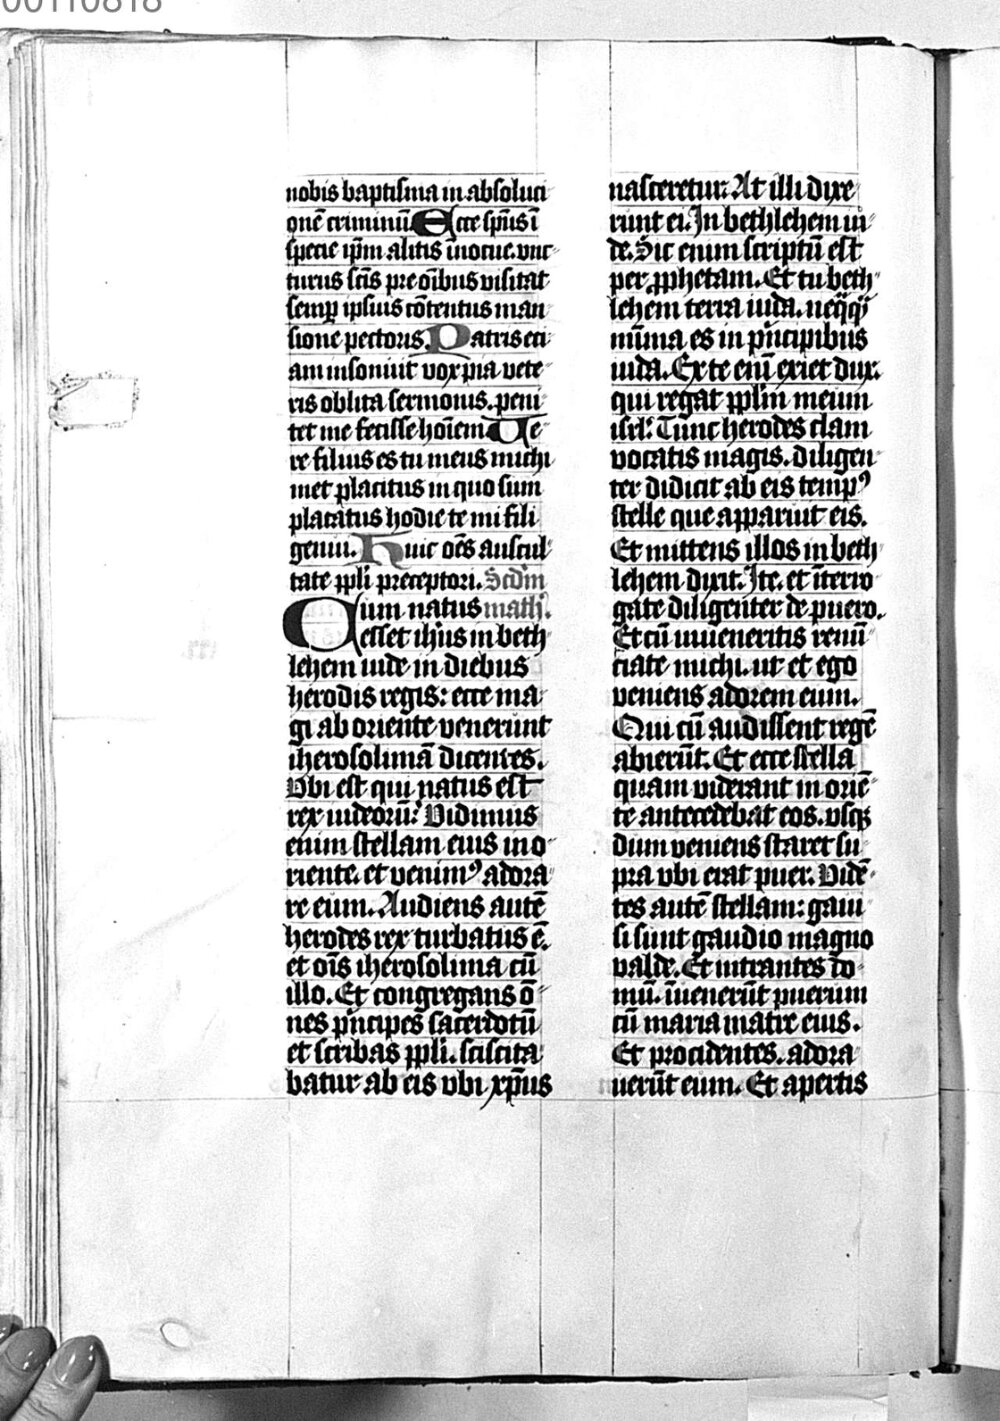 00110818
nobis baptisma in absoluci
onē criminū Ecce spūs ī
specie ipm alitis īnocue. vnc
turus scīs pre oībus visitat
semꝑ ipsius cōtentus man
sione pectoris. Patris eci
am insonuit vox pia vete
ris oblita sermonis. peni
tet me fecisse hoīem Ve
re filius es tu meus michi
met placitus in quo sum
placatus hodie te mi fili
genui. Huic oēs auscul
tate ppli preceptori. Scdm
Cum natus math.
esset ihus in beth
lehem iude in diebus
herodis regis: ecce ma
gi ab oriente venerunt
iherosolimā dicentes.
Vbi est qui natus est
rex iudeorū? Vidimus
enim stellam eius in o
riente. et venimꝰ adora
re eum. Audiens autē
herodes rex turbatus ē.
et oīs iherosolima cū
illo. Et congregans ō
nes pncipes sacerdotū
et scribas ppli. sciscita
batur ab eis vbi xp̄us
nasceretur. At illi dixe
runt ei. In bethlehem iu
de. Sic enim scriptū est
per ꝓphetam. Et tu beth
lehem terra iuda. neq̄q̄
mīma es in pncipibus
iuda. Ex te enī exiet dux.
qui regat pplm meum
isrl. Tunc herodes clam
vocatis magis. diligen
ter didicit ab eis tempꝰ
stelle que apparuit eis.
Et mittens illos in beth
lehem dixit. Ite. et īterro
gate diligenter de puero.
Et cū inueneritis renū
ciate michi. ut et ego
veniens adorem eum.
Qui cū audissent regē
abierūt. Et ecce stella
quam viderant in oriē
te antecedebat eos. vsqꝫ
dum veniens staret su
pra vbi erat puer. Vidē
tes autē stellam: gaui
si sunt gaudio magno
valde. Et intrantes do
mū. īuenerūt puerum
cū maria matre eius.
Et procidentes. adora
uerūt eum. Et apertis